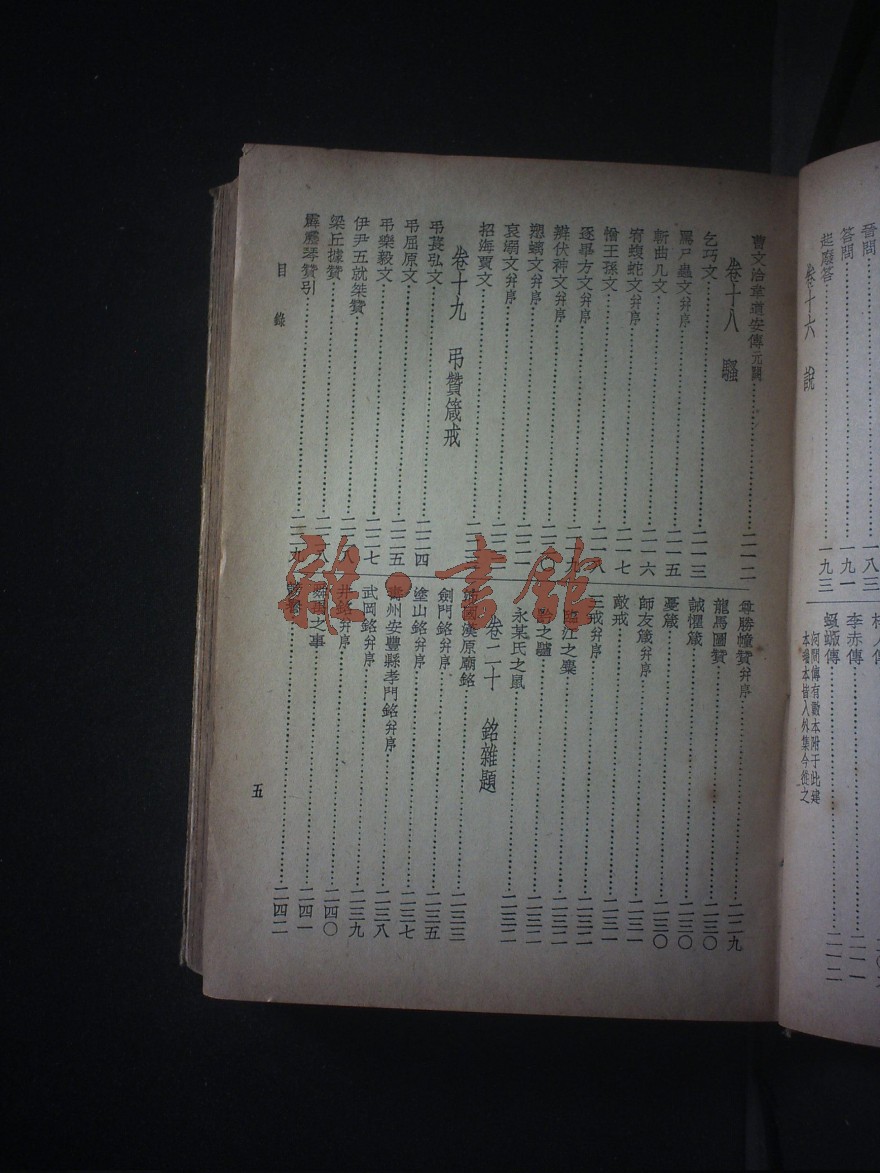 晉問……一八三
答問……一九一
起廢答……一九三
卷十六 說
李赤傳……二一一
蝜蝂傳……二一二
河間傳有數本附于此建
本蜀本皆入外集今從之
曹文洽韋道安傳元闕……二一二
卷十八 騷
乞巧文……二一三
罵尸蟲文并序……二一五
斬曲几文……二一六
宥蝮蛇文并序……二一七
憎王孫文……二一八
逐畢方文并序……二一九
辯伏神文并序……二二〇
愬螭文并序……二二一
哀溺文并序……二二二
招海賈文……二二三
卷十九 弔贊箴戒
弔萇弘文……二二四
弔屈原文……二二五
弔樂毅文……二二七
伊尹五就桀贊……二二八
梁丘據贊……二二八
霹靂琴贊引……二二九
尊勝幢贊并序……二二九
龍馬圖贊……二三〇
誡懼箴……二三〇
憂箴……二三〇
師友箴并序……二三一
敵戒……二三一
三戒并序……二三一
臨江之麋……二三二
黔之驢……二三二
永某氏之鼠……二三二
卷二十 銘雜題
沛國漢原廟銘……二三三
劍門銘并序……二三五
塗山銘并序……二三七
壽州安豐縣孝門銘并序……二三八
武岡銘并序……二三九
井銘并序……二四〇
舜禹之事……二四一
謗譽……二四二
目錄
五
雜·書館